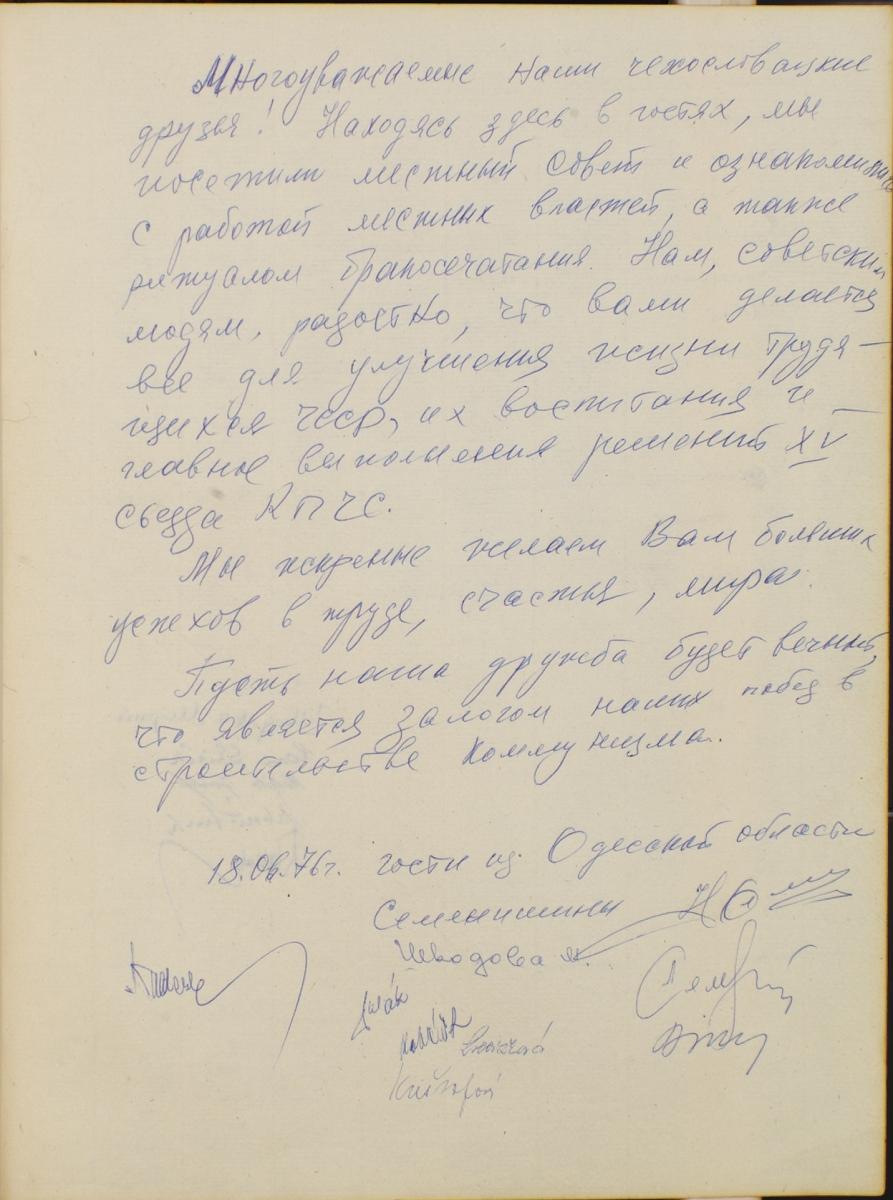 Многоуважаемые наши чехословацкие
друзья! Находясь здесь в гостях, мы
посетили местный совет и ознакомились
с работой местных властей, а также
ритуалом бракосочетания. Нам, советским
людям, радостно, что вами делается
все для улучшения жизни трудя-
щихся ЧССР, их воспитания и
главное выполнения решений XV
съезда КПЧС.
Мы искренне желаем Вам больших
успехов в труде, счастья, мира.
Пусть наша дружба будет вечной,
что является залогом наших побед в
строительстве Коммунизма.
18.08.76г. гости из Одесской области
Семенишины